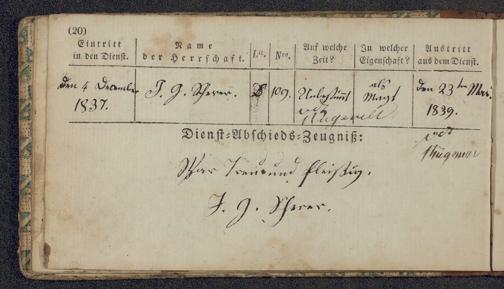 (20)
Eintritt in den Dienst.
Name der Herrschaft.
Lit.
Nro.
Auf welche Zeit?
In welcher Eigenschaft?
Austritt aus dem Dienst.
den 4 December 1837.
J. J. Scherer.
109.
Unbestimt
als Magt
den 23ten Mai 1839.
Dienst-Abschieds-Zeugniß:
War Treu und fleissig.
J. J. Scherer.